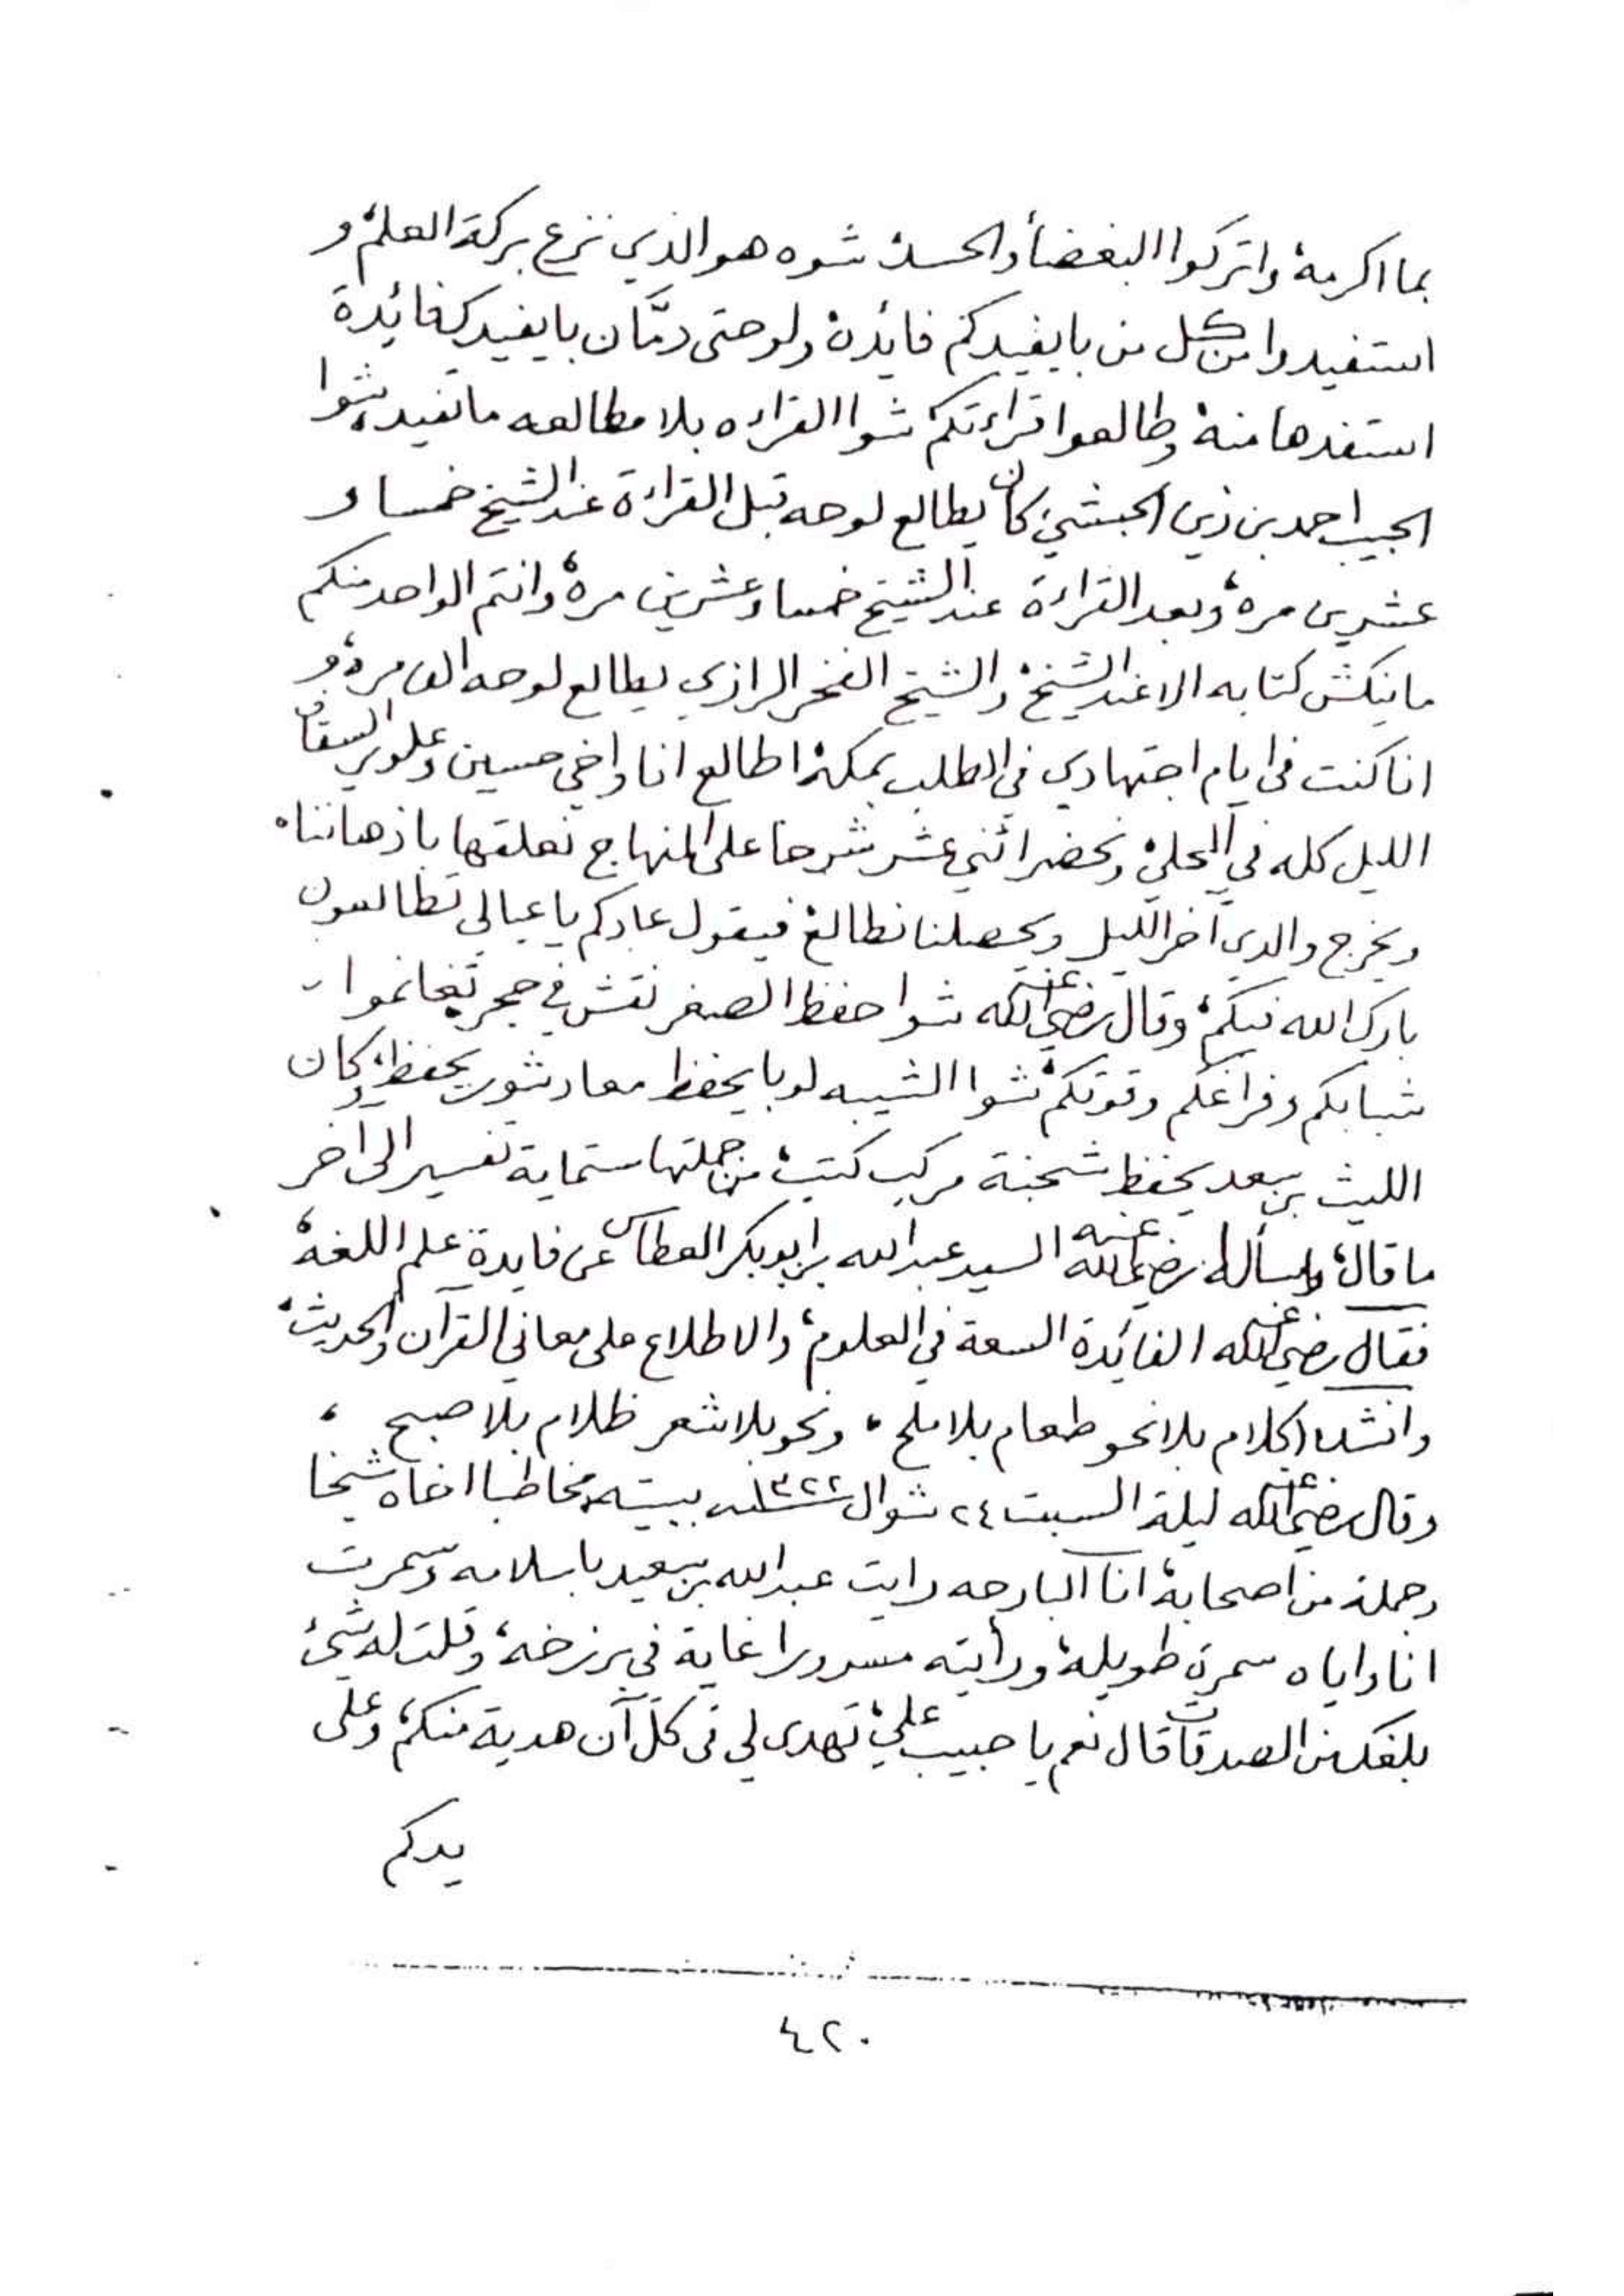 بما اكرمهُ واتركوا البغضأ والحسدْ شوه هو الذي نزع بركة العلمْ و
استفيدوا من كل من بايفيدكم فائدهْ ولو حتى دمَّان بايفيدك فائدة
استفدها منهْ وطالعوا قراءتكمْ شوا القراءه بلا مطالعه ماتفيد، شوا
الحبيب احمد بن زين الحبشي كان يطالع لوحه قبل القراءة عند الشيخ خمسا و
عشرين مرهْ وبعد القراءة عند الشيخ خمسا وعشرين مرهْ وانتم الواحد منكم
ماينكش كتابه الا عند الشيخْ والشيخ الفخر الرازي يطالع لوحه الف مرهْ و
انا كنت في ايام اجتهادي في الطلب بمكهْ اطالع انا واخي حسين وعلوي السقاف
الليل كله في المحليْ ونحضر اثني عشر شرحا على المنهاج نعلقها باذهاننا،
ويخرج والدي آخر الليل ويحصلنا نطالعْ فيقول عادكم ياعيالي تطالعون
بارك الله فيكمْ وقال رضي الله عنه شوا حفظ الصغر نقش في حجر تغانموا
شبابكم وفراغكم وقوتكمْ شوا الشيبه لو بايحفظ معاد شور يحفظْ وكان
الليث بن سعد يحفظ شحنة مركب كتبْ من جملتها ستماية تفسير الى آخر
ما قالْ وسأله رضي الله عنه السيد عبدالله بن ابوبكر العطاس عن فايدة علم اللغهْ
فقال رضي الله عنه الفائدة السعة في العلومْ والاطلاع على معاني القرآن والحديث،
وانشد كلام بلا نحو طعام بلا ملح، ونحو بلا شعر ظلام بلا صبح ،
وقال رضي الله عنه ليلة السبت ٢٤ شوال ١٣٢٢سنه ببيته مخاطبا اخاه شيخا
وجملة من اصحابهْ انا البارحه رايت عبدالله بن سعيد باسلامه وسمرت
انا واياه سمرة طويلهْ ورأيته مسرورا غاية في برزخهْ وقلت له شيْ
بلغك من الصدقات قال نعم يا حبيب عليْ تهدى لي في كل آن هدية منكمْ وعلى
يدكم
٤٢٠